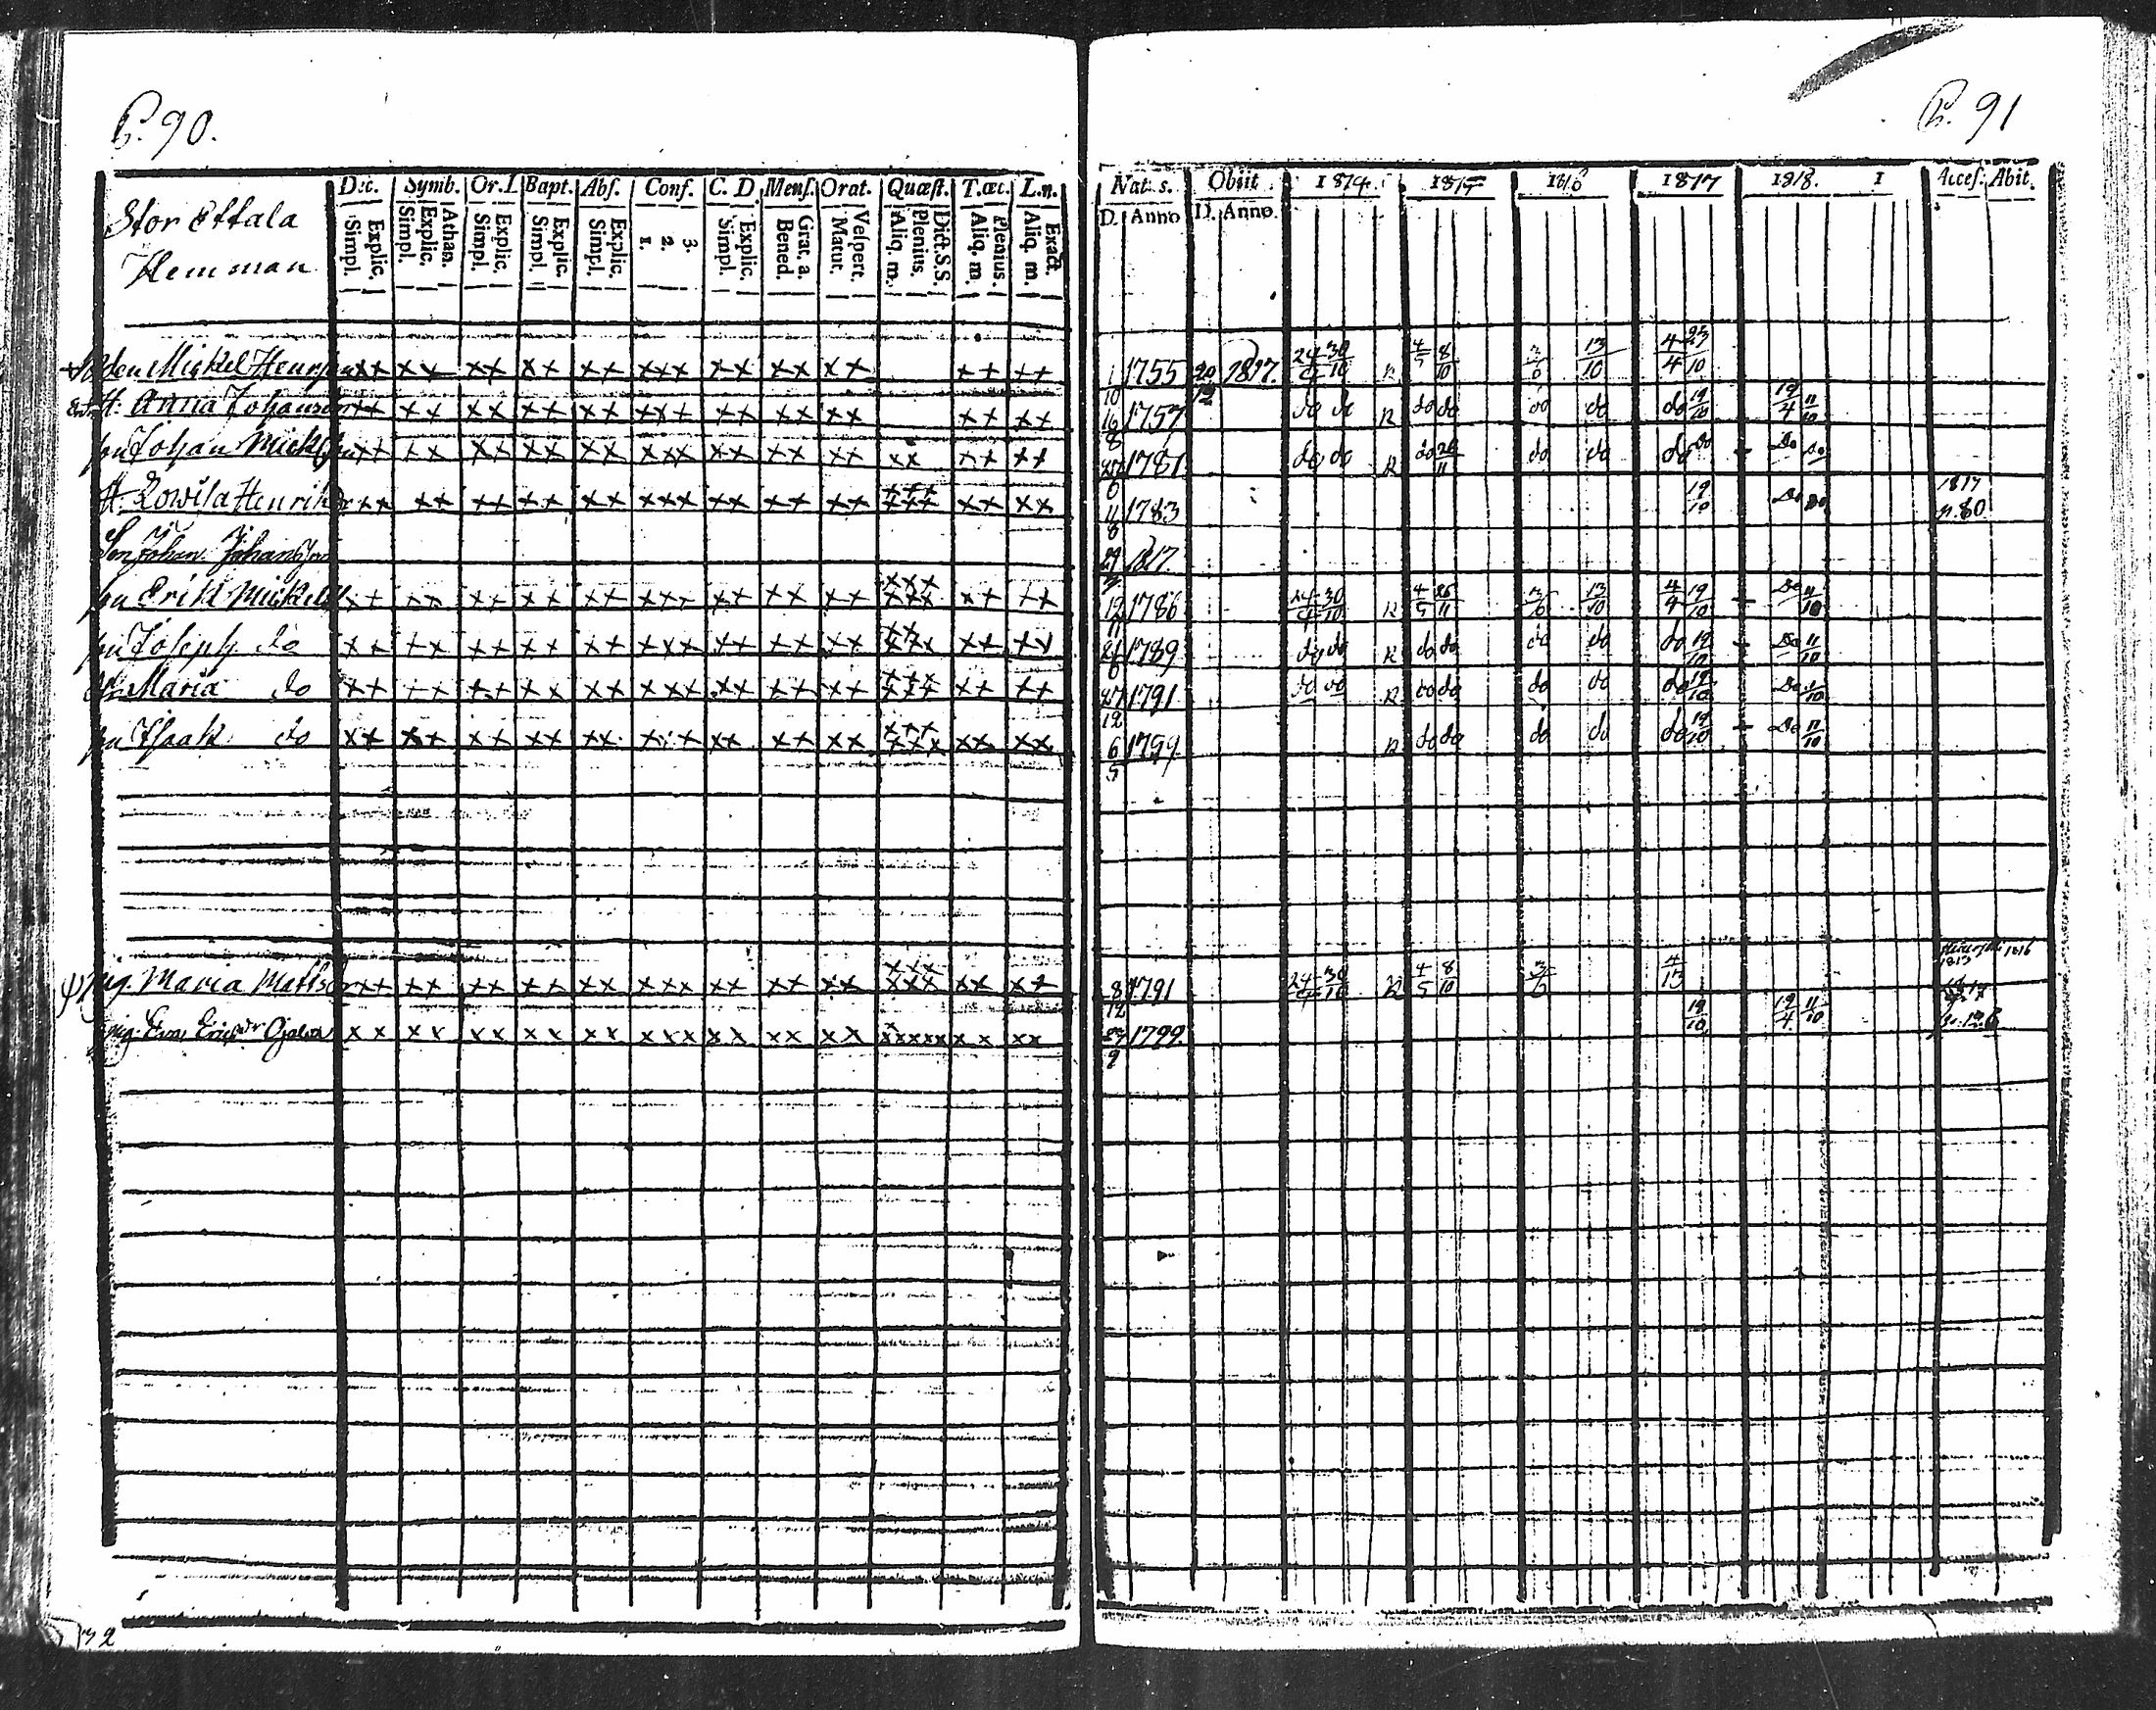 P. 90.
Stor Ettala
Hemman
Dec. Symb. Or. D Bapt. Abſ. Conf. C. D. Menſ. Orat. Quæſt. T. œc. L. n.
Simpl. Explic. Simpl. Explic. Athan. Simpl. Explic. Simpl. Explic. Simpl. Explic. 1. 2. 3. Simpl. Explic. Bened. Grat. a. Matut. Veſpert. Aliq. m. Plenius. Dict. S. S. Aliq. m. Plenius. Aliq. m. Exact.
Mickel Henrſſon xx xx xx xx xx xxx xx xx xx xx xx
H. Anna Johansdr xx xx xx xx xx xxx xx xx xx xx xx
Johan Mickelſſon xx xx xx xx xx xxx xx xx xx xx xx xx
H. Lowisa Henriksdr xx xx xx xx xx xxx xx xx xx xxx xxx xx xx
Son Johan Johansſon
Erik Mickelſ xx xx xx xx xx xxx xx xx xx xxx xxx xx xx
Joseph do xx xx xx xx xx xxx xx xx xx xx xxx xx xx
Maria do xx xx xx xx xx xxx xx xx xx xxx xxx xx xx
Isaak do xx xx xx xx xx xxx xx xx xx xxx xxx xx xx
Pig. Maria Matsdr xx xx xx xx xx xxx xx xx xx xxx xxx xx xx
Pig. Eva Ericsdr xx xx xx xx xx xxx xx xx xx x xxxxx xx xx
P. 91
Nat. s. Obiit 1814. 1815 1816 1817 1818. 1 Acceſ. Abit.
D. Anno D. Anno.
1/10 1755 20/12 1817. 24/4 30/10 R 4/5 8/10 3/6 13/10 4/4
16/8 1757 do do R do do do do do 19/10 19/4 11/10
1781 do do R do 26/11 do do do do Do Do
11/8 1783 19/10 Do Do 1817 p. 80
29 1817
12/11 1786 24/4 30/10 R 4/5 26/11 3/6 13/10 4/4 19/10 Do 11/10
21/6 1789 do do R do do do do do 19/10 Do 11/10
27/12 1791 do do R do do do do do 19/10 Do 11/10
6/5 1799 R do do do do do 19/10 Do 11/10
8/12 1791 24/4 30/10 R 4/5 8/10 3/6 4/13 1813 1816
9 1799. 19/10 19/4 11/10